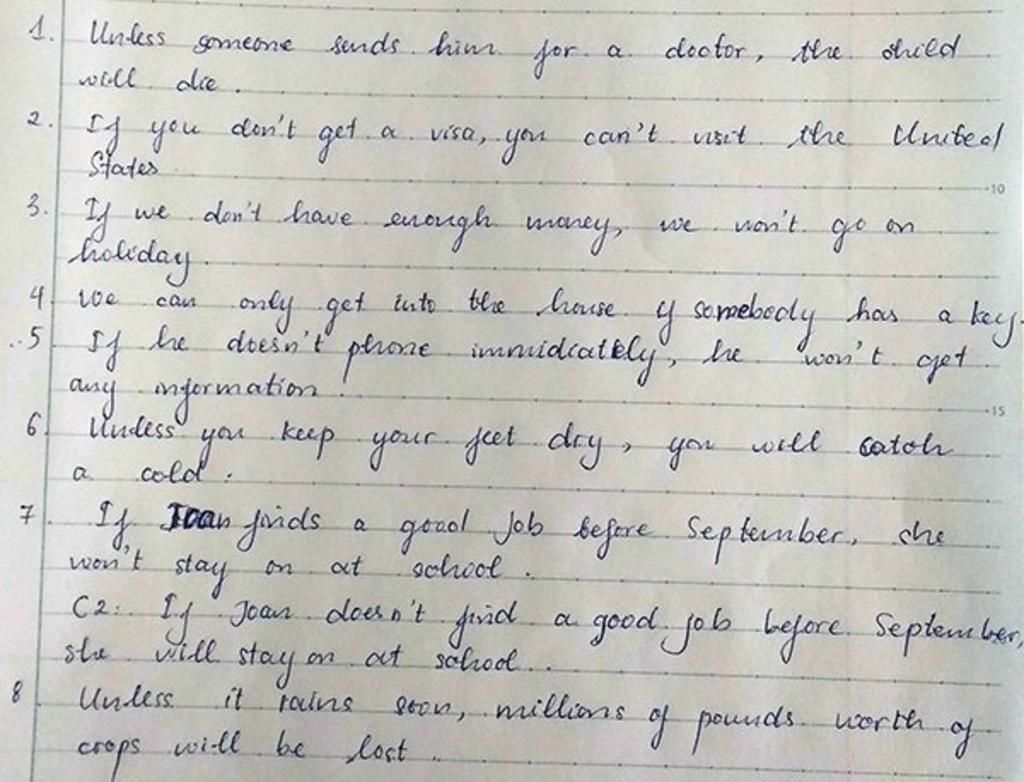 1. Unless someone sends him for a doctor, the child
will die.
2. If you don't get a visa, you can't visit the United
States
10
3. If we don't have enough money, we won't go on
holiday.
4 We can only get into the house if somebody has a key.
5 If he doesn't phone immidiatelly, he won't get
any information.
15
6 Unless you keep your feet dry, you will catch
a cold.
7 If Joan finds a good job before September, she
won't stay on at school.
C2: If Joan doesn't find a good job before September,
she will stay on at school.
8 Unless it rains soon, millions of pounds worth of
crops will be lost.